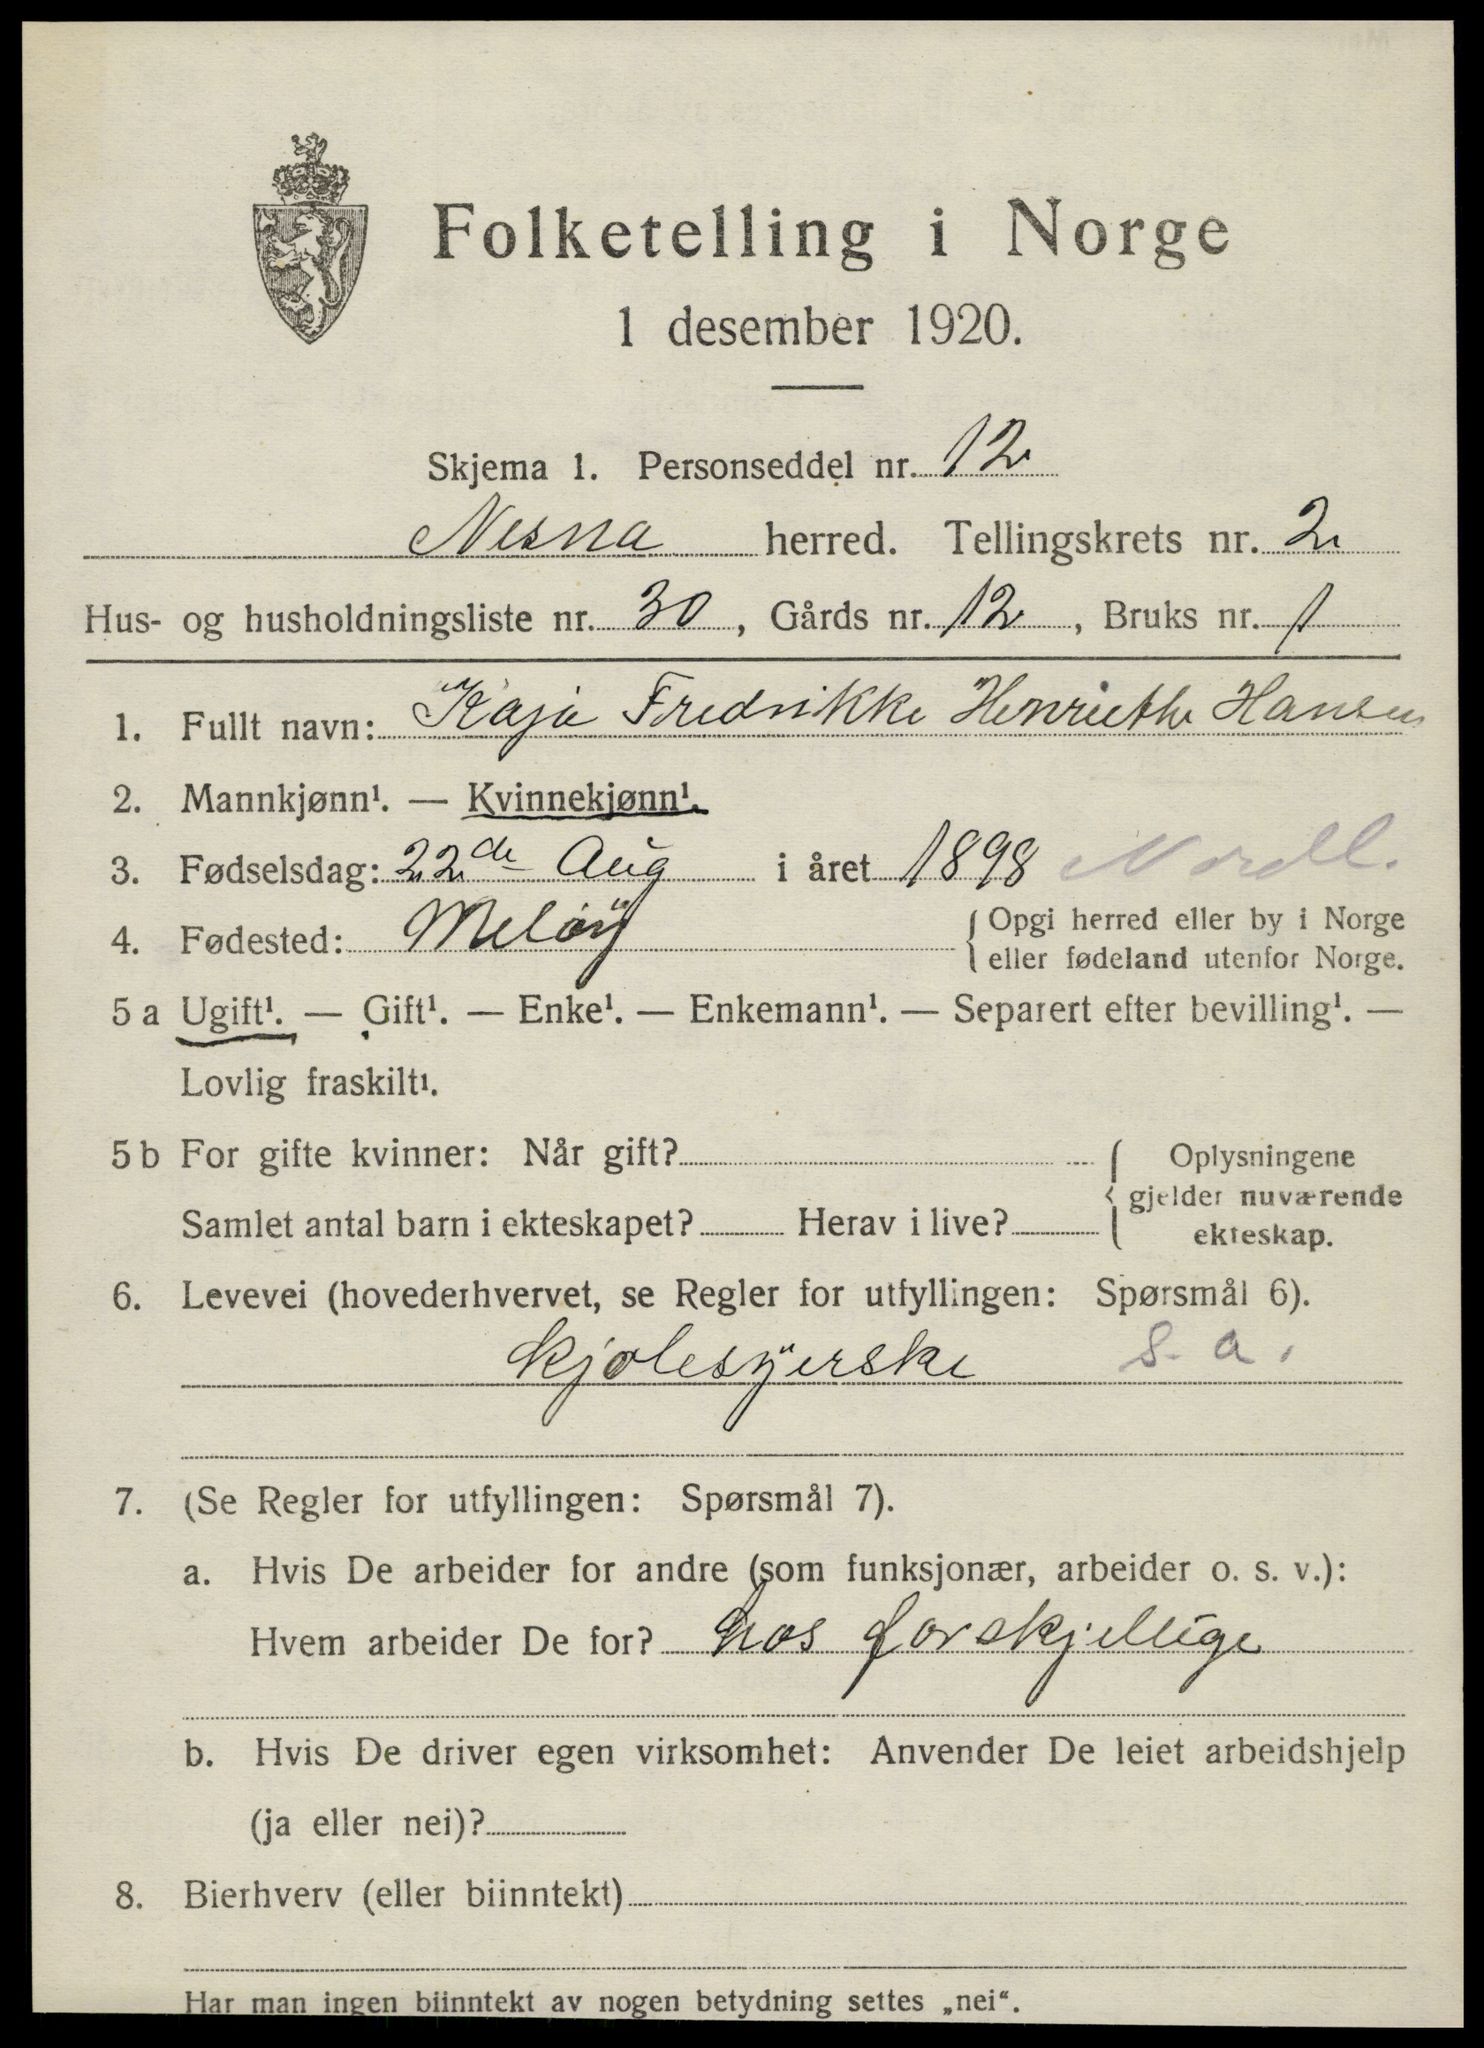 Folketelling i Norge
1 desember 1920.
Skjema 1. Personseddel nr. 12
Nesna herred. Tellingskrets nr. 2
Hus- og husholdningsliste nr. 30, Gårds nr. 12, Bruks nr. 1
1. Fullt navn: Kaja Fredrikke Henriethe Hansen
2. Mannkjønn¹. — Kvinnekjønn¹.
3. Fødselsdag: 22de Aug i året 1898 Nordl.
4. Fødested: Meløy { Opgi herred eller by i Norge
eller fødeland utenfor Norge.
5 a Ugift¹. — Gift¹. — Enke¹. — Enkemann¹. — Separert efter bevilling¹. —
Lovlig fraskilt¹.
5 b For gifte kvinner: Når gift? { Oplysningene
gjelder nuværende
Samlet antal barn i ekteskapet? Herav i live?
ekteskap.
6. Levevei (hovederhvervet, se Regler for utfyllingen: Spørsmål 6).
kjolesyerske s. a.
7. (Se Regler for utfyllingen: Spørsmål 7).
a. Hvis De arbeider for andre (som funksjonær, arbeider o. s. v.):
Hvem arbeider De for? hos forskjellige
b. Hvis De driver egen virksomhet: Anvender De leiet arbeidshjelp
(ja eller nei)?
8. Bierhverv (eller biinntekt)
Har man ingen biinntekt av nogen betydning settes „nei“.